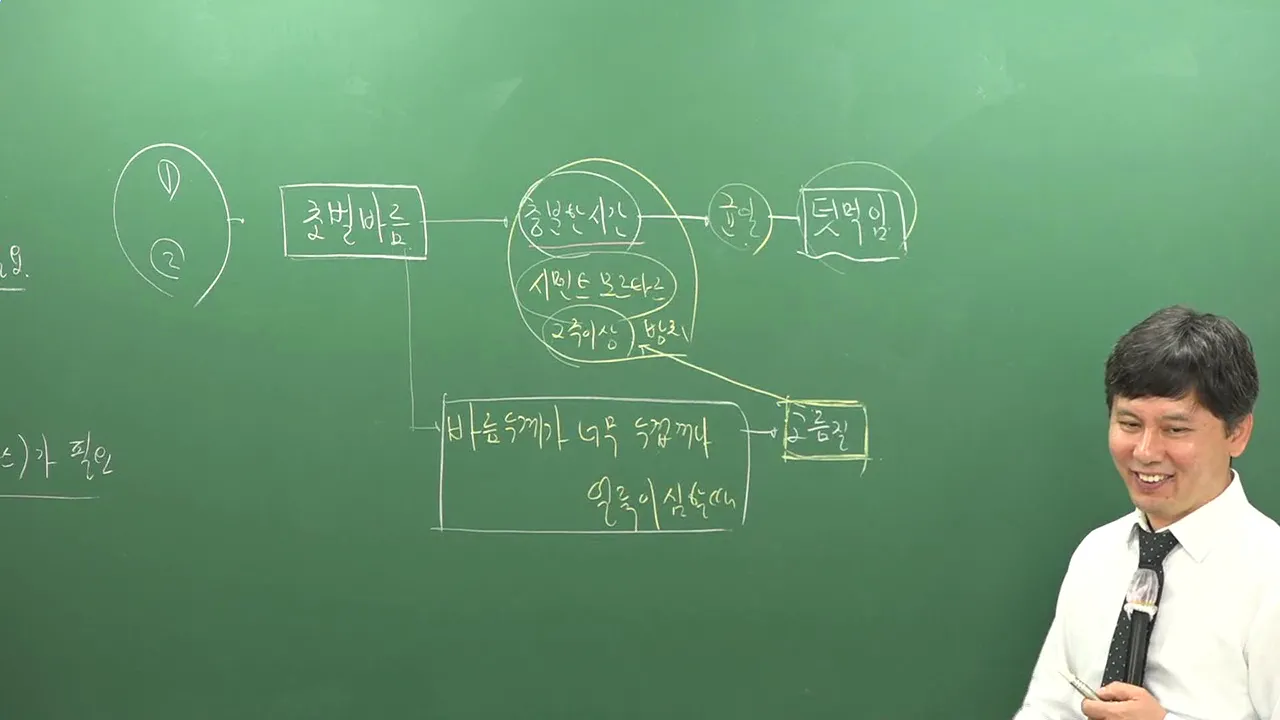 ①
②
초벌바름
충분한 시간
균열
덧먹임
시멘트 모르타르
2주이상 방치
바름두께가 너무 두껍거나
얼룩이 심할때
고름질
)가 필요